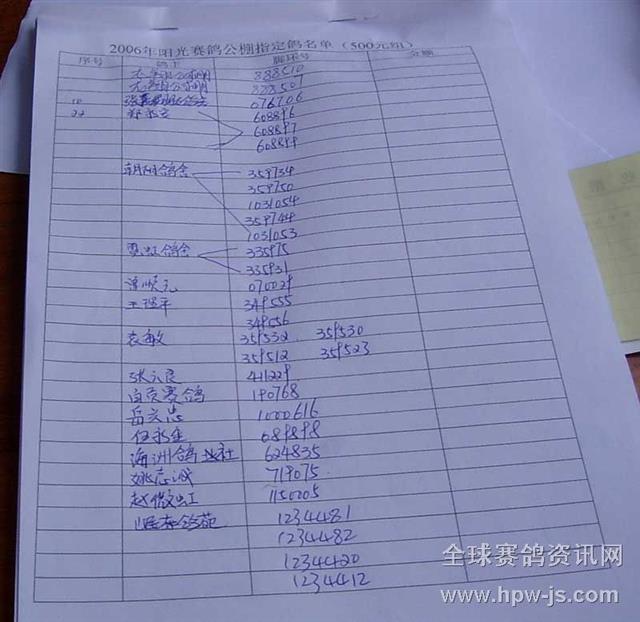 2006年阳光赛鸽公棚指定鸽名单（500元组）
序号 鸽主 脚环号 金额
888510
888501
10 076706
22 郑永立 608896
608897
608899
朝阳鸽舍 359734
359750
1031054
359744
1031053
鸽舍 335975
335931
070029
王 平 349555
349556
袁敏 359532 359530
359512 359523
411229
自贡赛鸽 190768
岳 忠 1000616
伍永生 089898
海洲鸽社 624835
姚志 719075
赵 虹 1150005
1234481
1234482
1234420
1234412
全球赛鸽资讯网
www.hpw-js.com